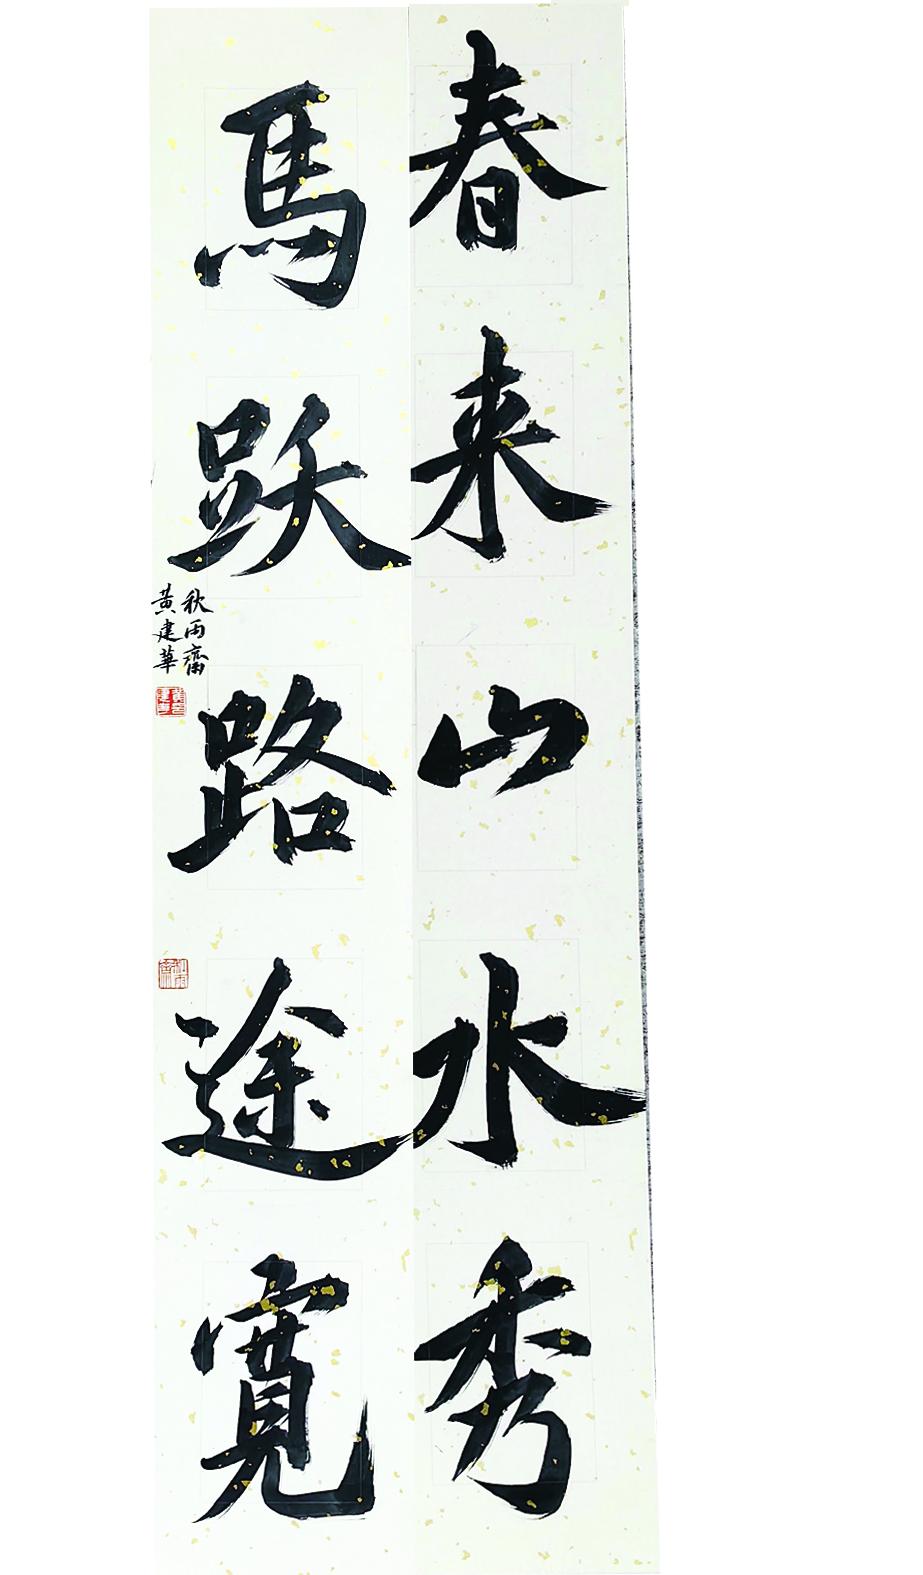 春来山水秀
馬跃路途寬
秋雨齋
黄建華